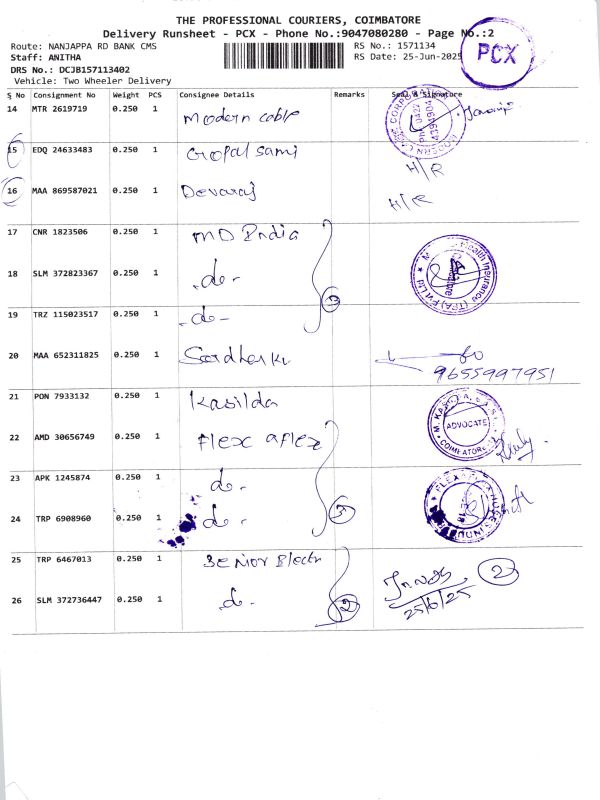 THE PROFESSIONAL COURIERS, COIMBATORE
Delivery Runsheet - PCX - Phone No.:9047080280 - Page No.:2
Route: NANJAPPA RD BANK CMS
RS No.: 1571134
Staff: ANITHA
RS Date: 25-Jun-2025
PCX
DRS No.: DCJB157113402
Vehicle: Two Wheeler Delivery
S No Consignment No Weight PCS Consignee Details Remarks Seal & Signature
14 MTR 2619719 0.250 1 Modern cable
15 EDQ 24633483 0.250 1 Gopal sami H/R
16 MAA 869587021 0.250 1 Devaraj H/R
17 CNR 1823506 0.250 1 MD India
18 SLM 372823367 0.250 1 - do -
3
Health Insurance (TPA) Pvt Ltd
19 TRZ 115023517 0.250 1 - do -
20 MAA 652311825 0.250 1
9655997951
21 PON 7933132 0.250 1 Kasilda
ADVOCATE
COIMBATORE
22 AMD 30656749 0.250 1 Flex aflex
23 APK 1245874 0.250 1 do -
24 TRP 6908960 0.250 1 do - 3
25 TRP 6467013 0.250 1 Senior Electr
2
26 SLM 372736447 0.250 1 do - 2
25/6/25